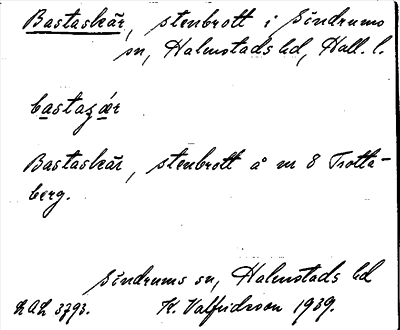 Bastaskär, stenbrott i Söndrums
sn, Halmstads hd, Hall. l.
bastasɕär
Bastaskär, stenbrott å nr 8 Trotta-
berg.
Söndrums sn, Halmstads hd
LAL 3793. K. Valfridsson 1939.